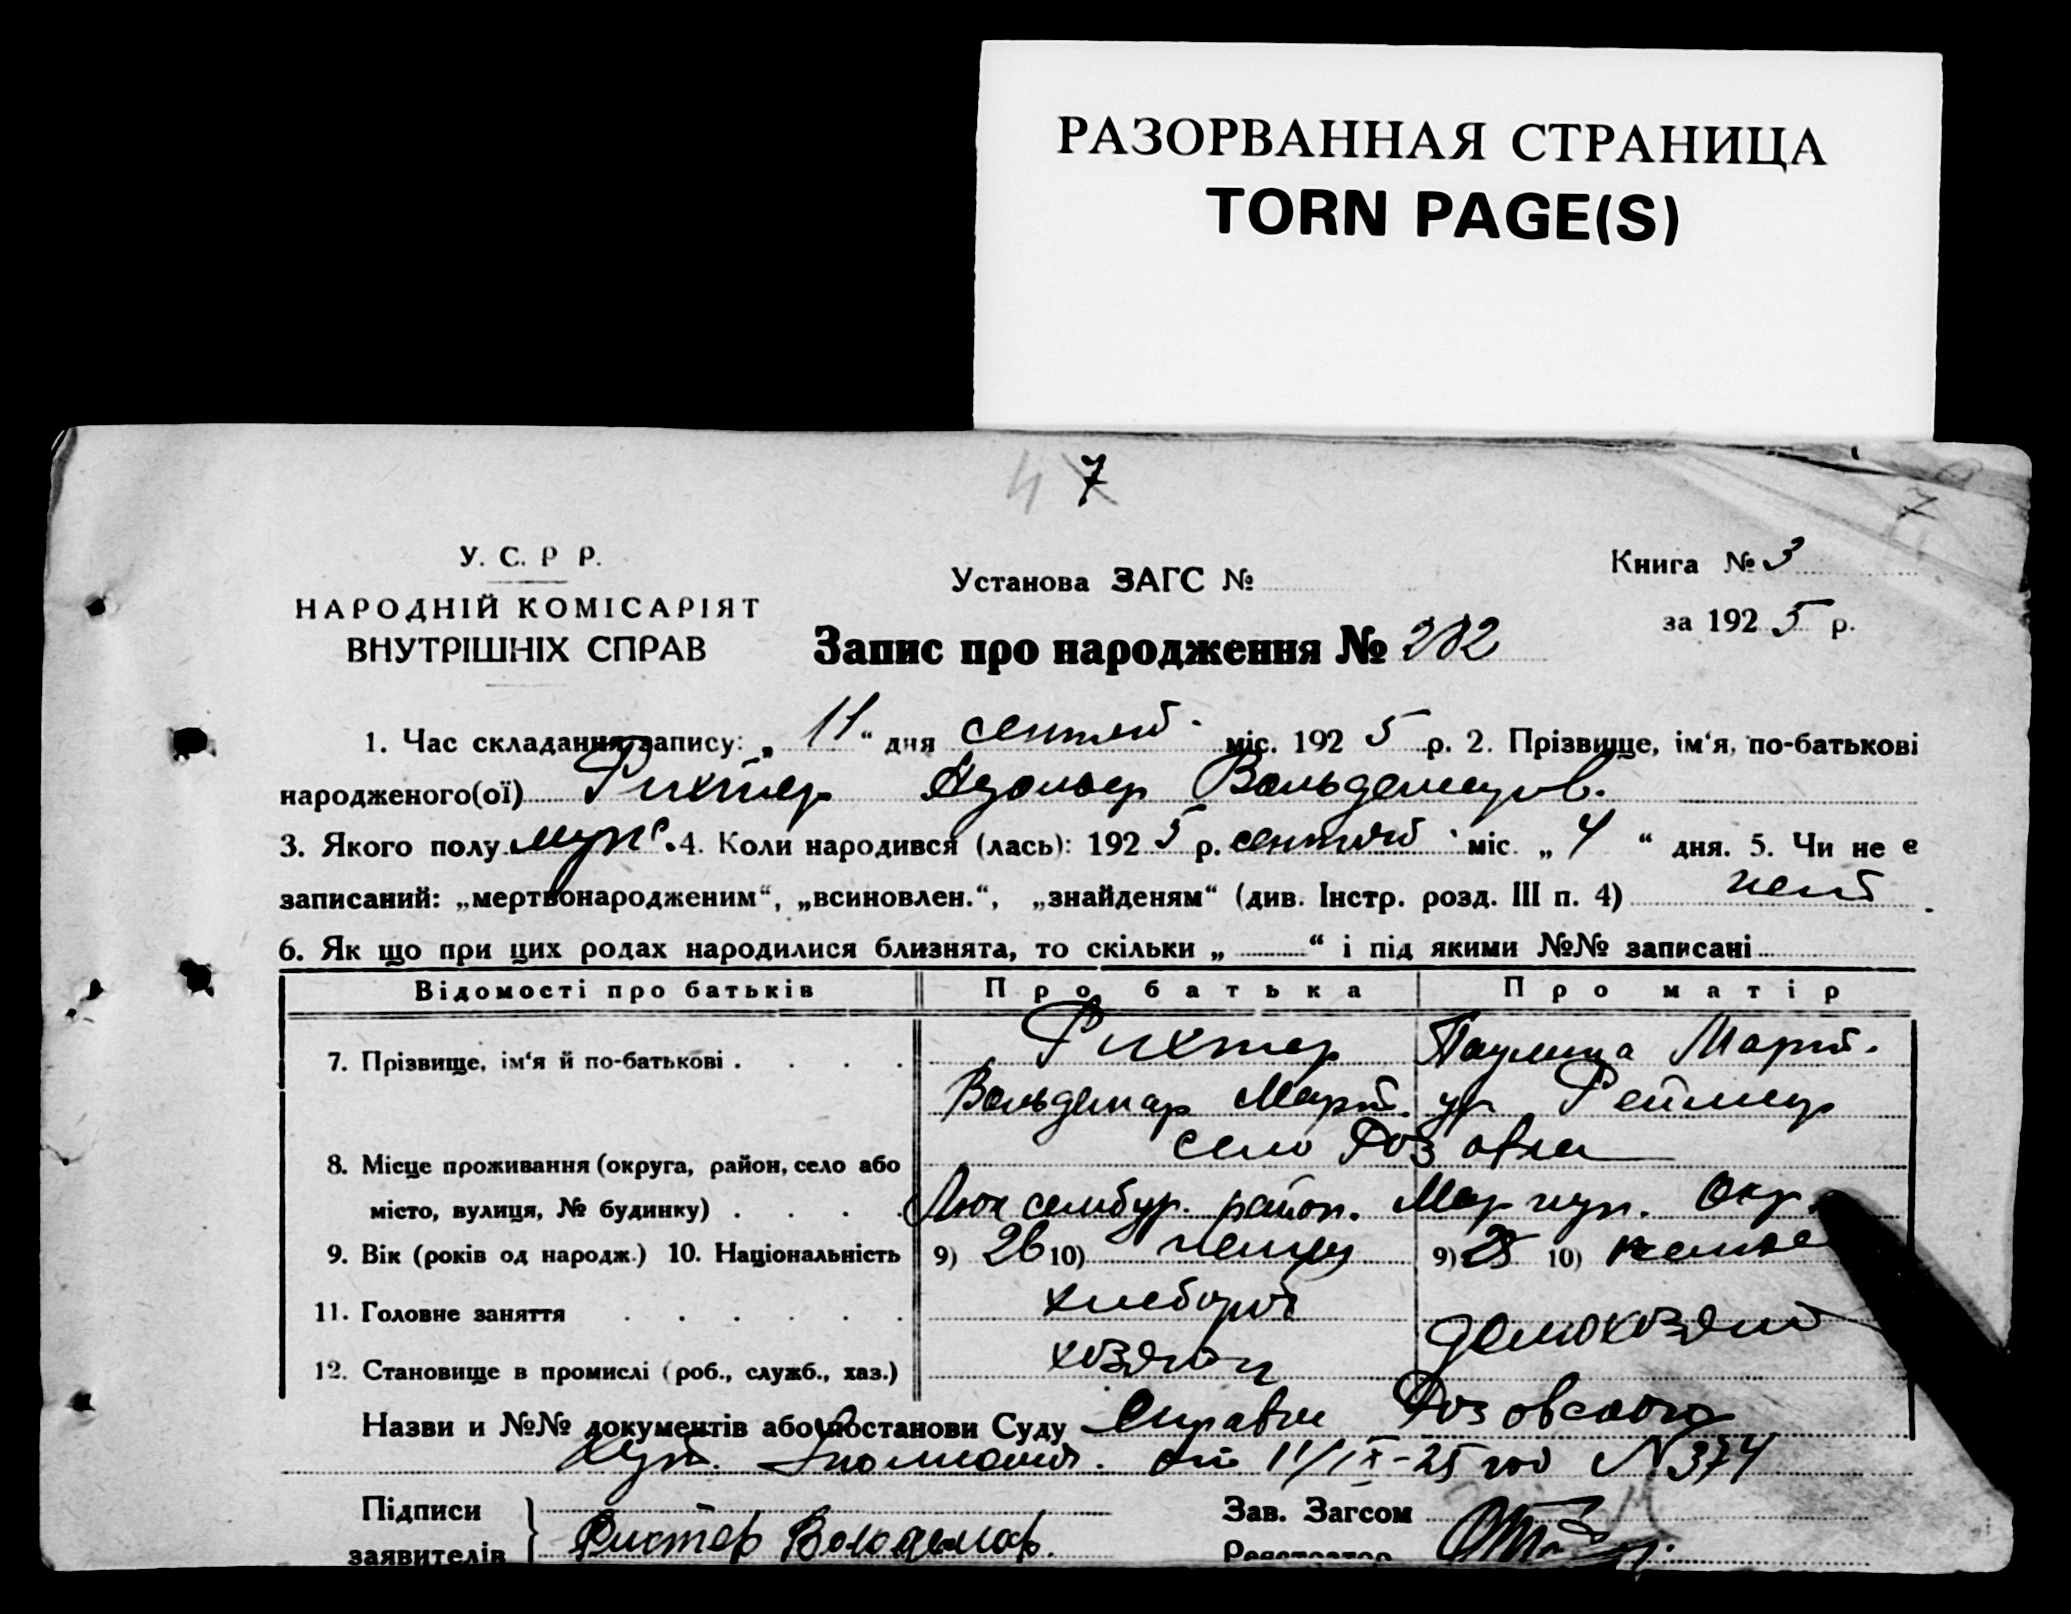 РАЗОРВАННАЯ СТРАНИЦА
TORN PAGE(S)
7
У. С. Р Р.
НАРОДНІЙ КОМІСАРІЯТ
ВНУТРІШНІХ СПРАВ
Установа ЗАГС №
Книга № 3
за 1925 р.
Запис про народження № 282
1. Час складання запису: „ 11 “ дня сентяб. міс. 1925 р. 2. Прізвище, ім‘я, по-батькові
народженого(ої) Рихтер Адольф Вальдемаров.
3. Якого полу муж. 4. Коли народився (лась): 1925 р. сентяб. міс. „ 4 “ дня. 5. Чи не є
записаний: „мертвонародженим“, „всиновлен.“, „знайденям“ (див. Інстр. розд. III п. 4) нет
6. Як що при цих родах народилися близнята, то скільки „ “ і під якими №№ записані
Відомості про батьків Про батька Про матір
7. Прізвище, ім‘я й по-батькові . . . . Рихтер Паулина Март.
Вальдемар Март. ур Реймер
село Розовка
8. Місце проживання (округа, район, село або
місто, вулиця, № будинку) . . . . Люксембур. район. Мариуп. Окр.
9. Вік (років од народж.) 10. Національність 9) 26 10) немец 9) 25 10) немке
11. Головне заняття . . . . . . хлебороб
домохозяй
12. Становище в промислі (роб., служб., хаз.) хозяин
Назви и №№ документів або постанови Суду Справки Розовского
от 11/IX-25 год N 374
Підписи
заявителів Рихтер Володемар.
Зав. Загсом
Реєстратор